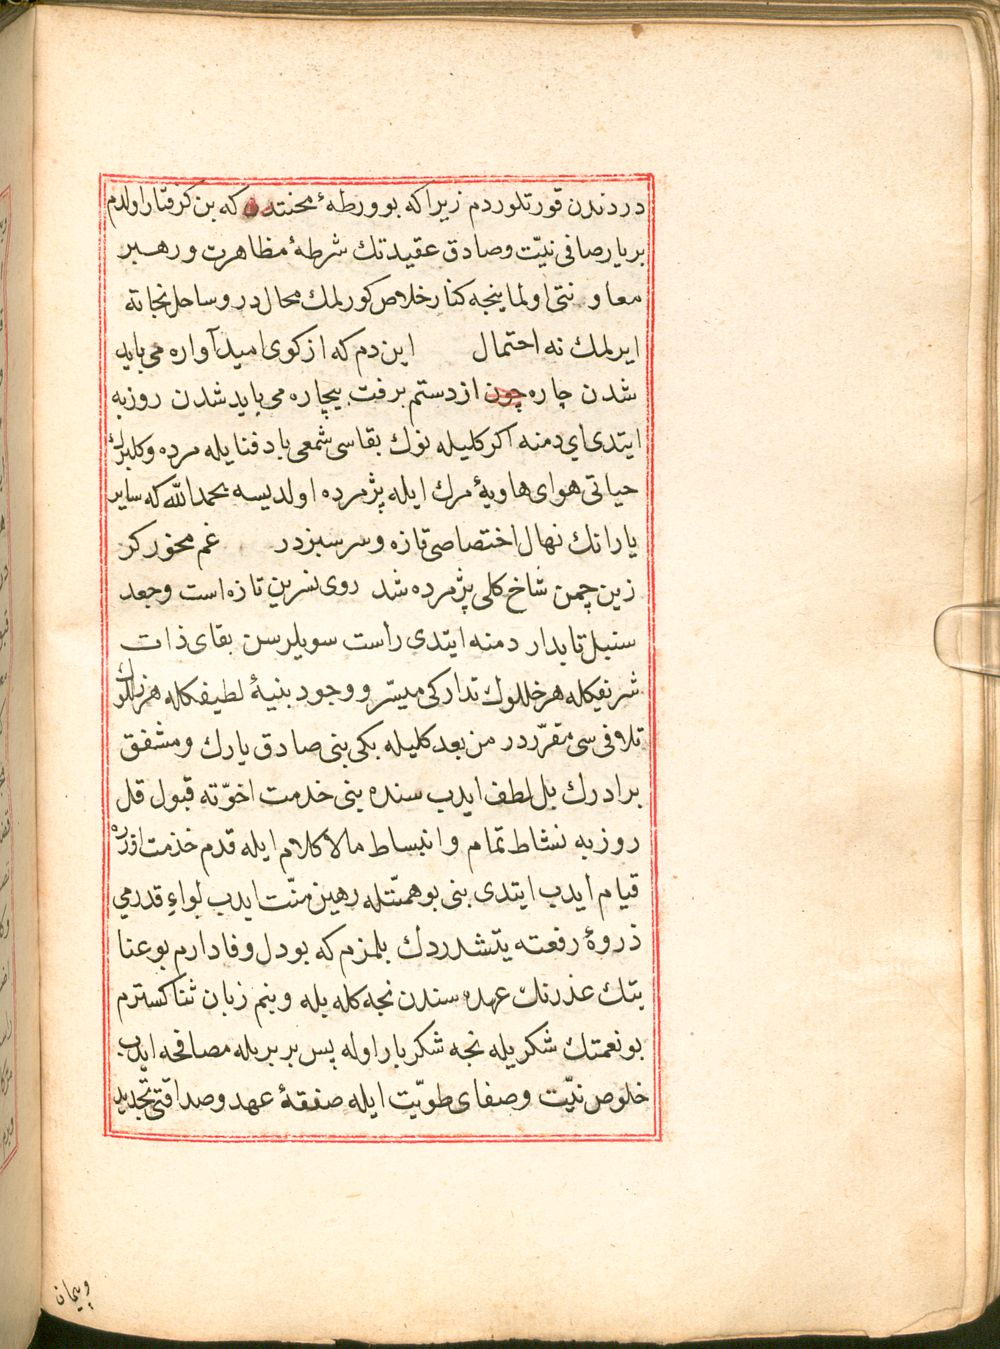 دردندن قورتلوردم زیرا که بو ورطهٔ محنتده که بن کرفتار اولدم
بر یار صافی نیّت و صادق عقیدتك شرطهٔ مظاهرت و رهبر
معاونتی اولماینجه کنار خلاص کورلمك محالدر و ساحل نجاته
ایرلمك نه احتمال این دم که از کوی امید آواره می باید
شدن چاره چون از دستم برفت بیچاره می باید شدن روزبه
ایتدی ای دمنه اکر کلیله نوك بقاسی شمعی باد فنایله مرده و کلبرك
حیاتی هوای هاویهٔ مرك ایله پژمرده اولدیسه بحمد الله که سایر
یارانك نهال اختصاصی تازه و سرسبزدر غم مخور کر
زین چمن شاخ کلی پژمرده شد روی نسرین تازه است و جعد
سنبل تابدار دمنه ایتدی راست سویلرسن بقای ذات
شریفکله هر خللوك تدارکی میسّر و وجود بنیهٔ لطیفکله هر زللوك
تلافی سی مقرّردر من بعد کلیله بکی بنی صادق یارك و مشفق
برادرك بل لطف ایدب سنده بنی خدمت اخوّته قبول قل
روزبه نشاط تمام و انبساط مالاکلام ایله قدم خذمت اوزره
قیام ایدب ایتدی بنی بو همّتله رهین منّت ایدب لواء قدرمی
ذروهٔ رفعته یتشدردك بلمزم که بو دل وفادارم بو عنا
یتك عذرنك عهده سندن نجه کله بله و بنم زبان ثنا کسترم
بو نعمتك شکریله نجه شکربار اوله پس بر بریله مصافحه ایدب
خلوص نیّت و صفای طویّت ایله صفقهٔ عهد و صداقتی تجدید
و پیمان